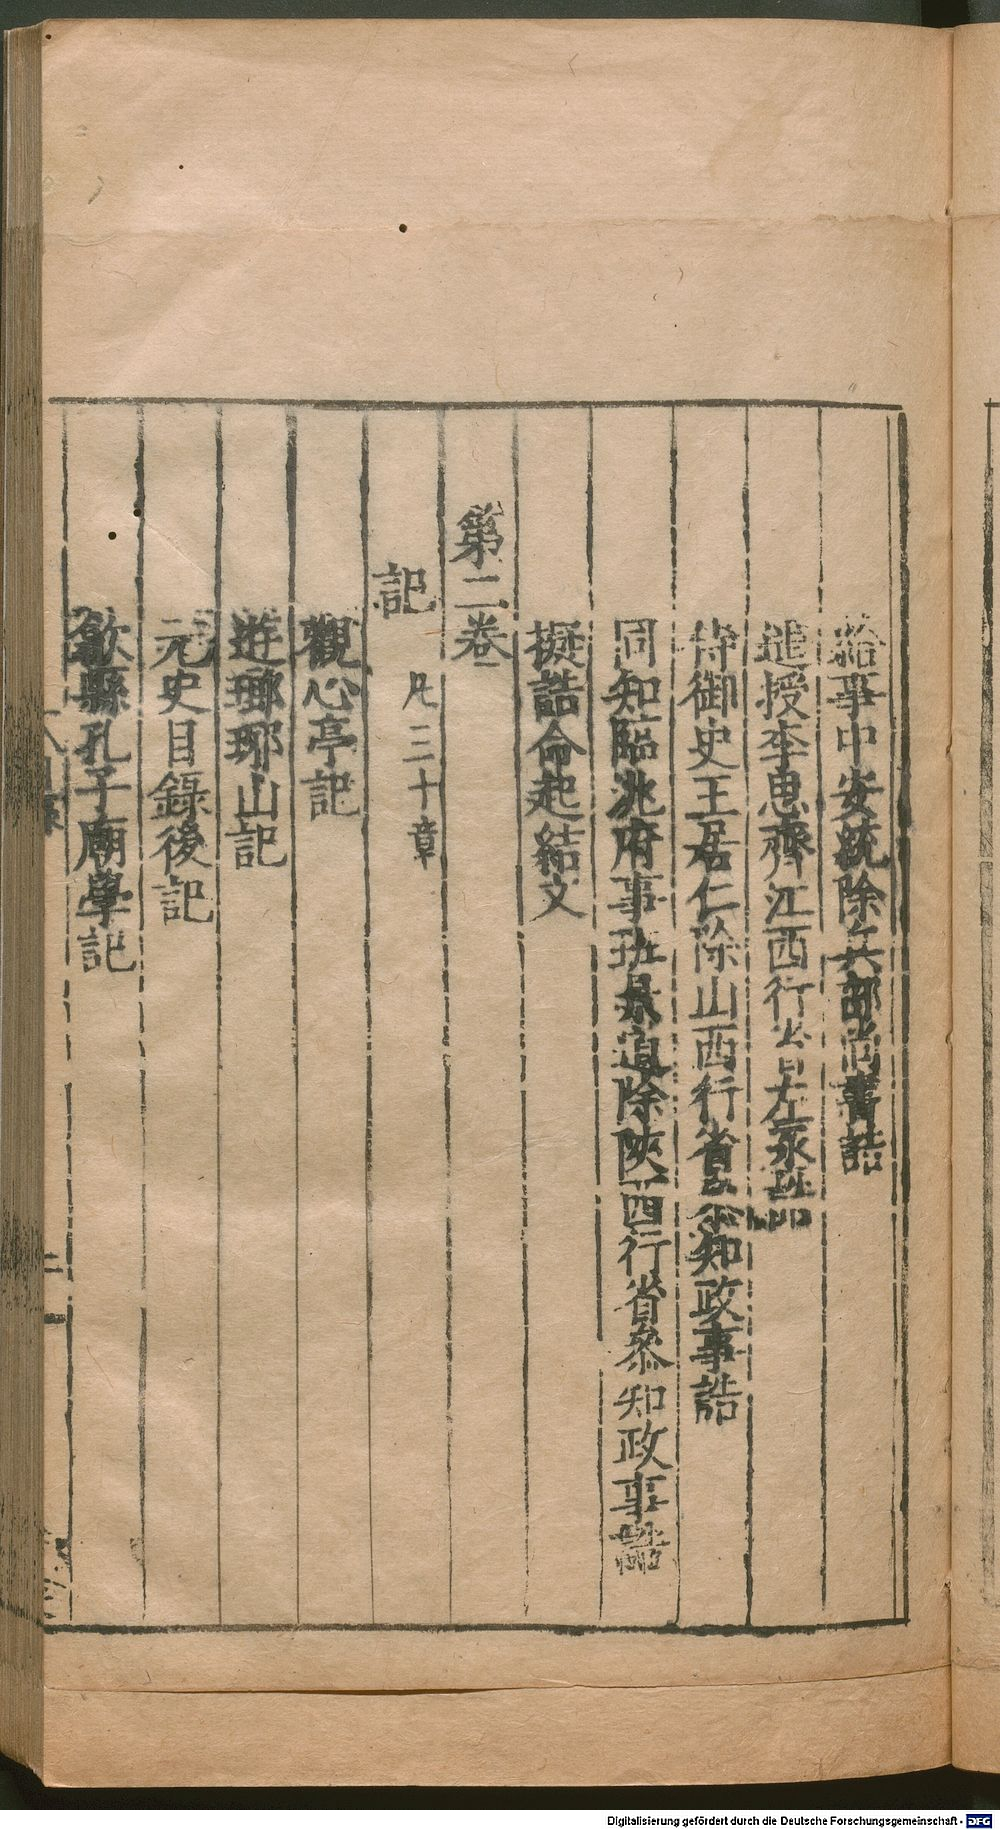 給事中安統除兵部尚書誥
追授李思齊江西行省左丞誥
侍御史王居仁除山西行省參知政事誥
同知臨洮府事班景道除陝西行省參知政事誥
擬誥命起結文
第二卷
記 凡三十章
觀心亭記
遊瑯琊山記
元史目錄後記
歙縣孔子廟學記
Digitalisierung gefördert durch die Deutsche Forschungsgemeinschaft - DFG